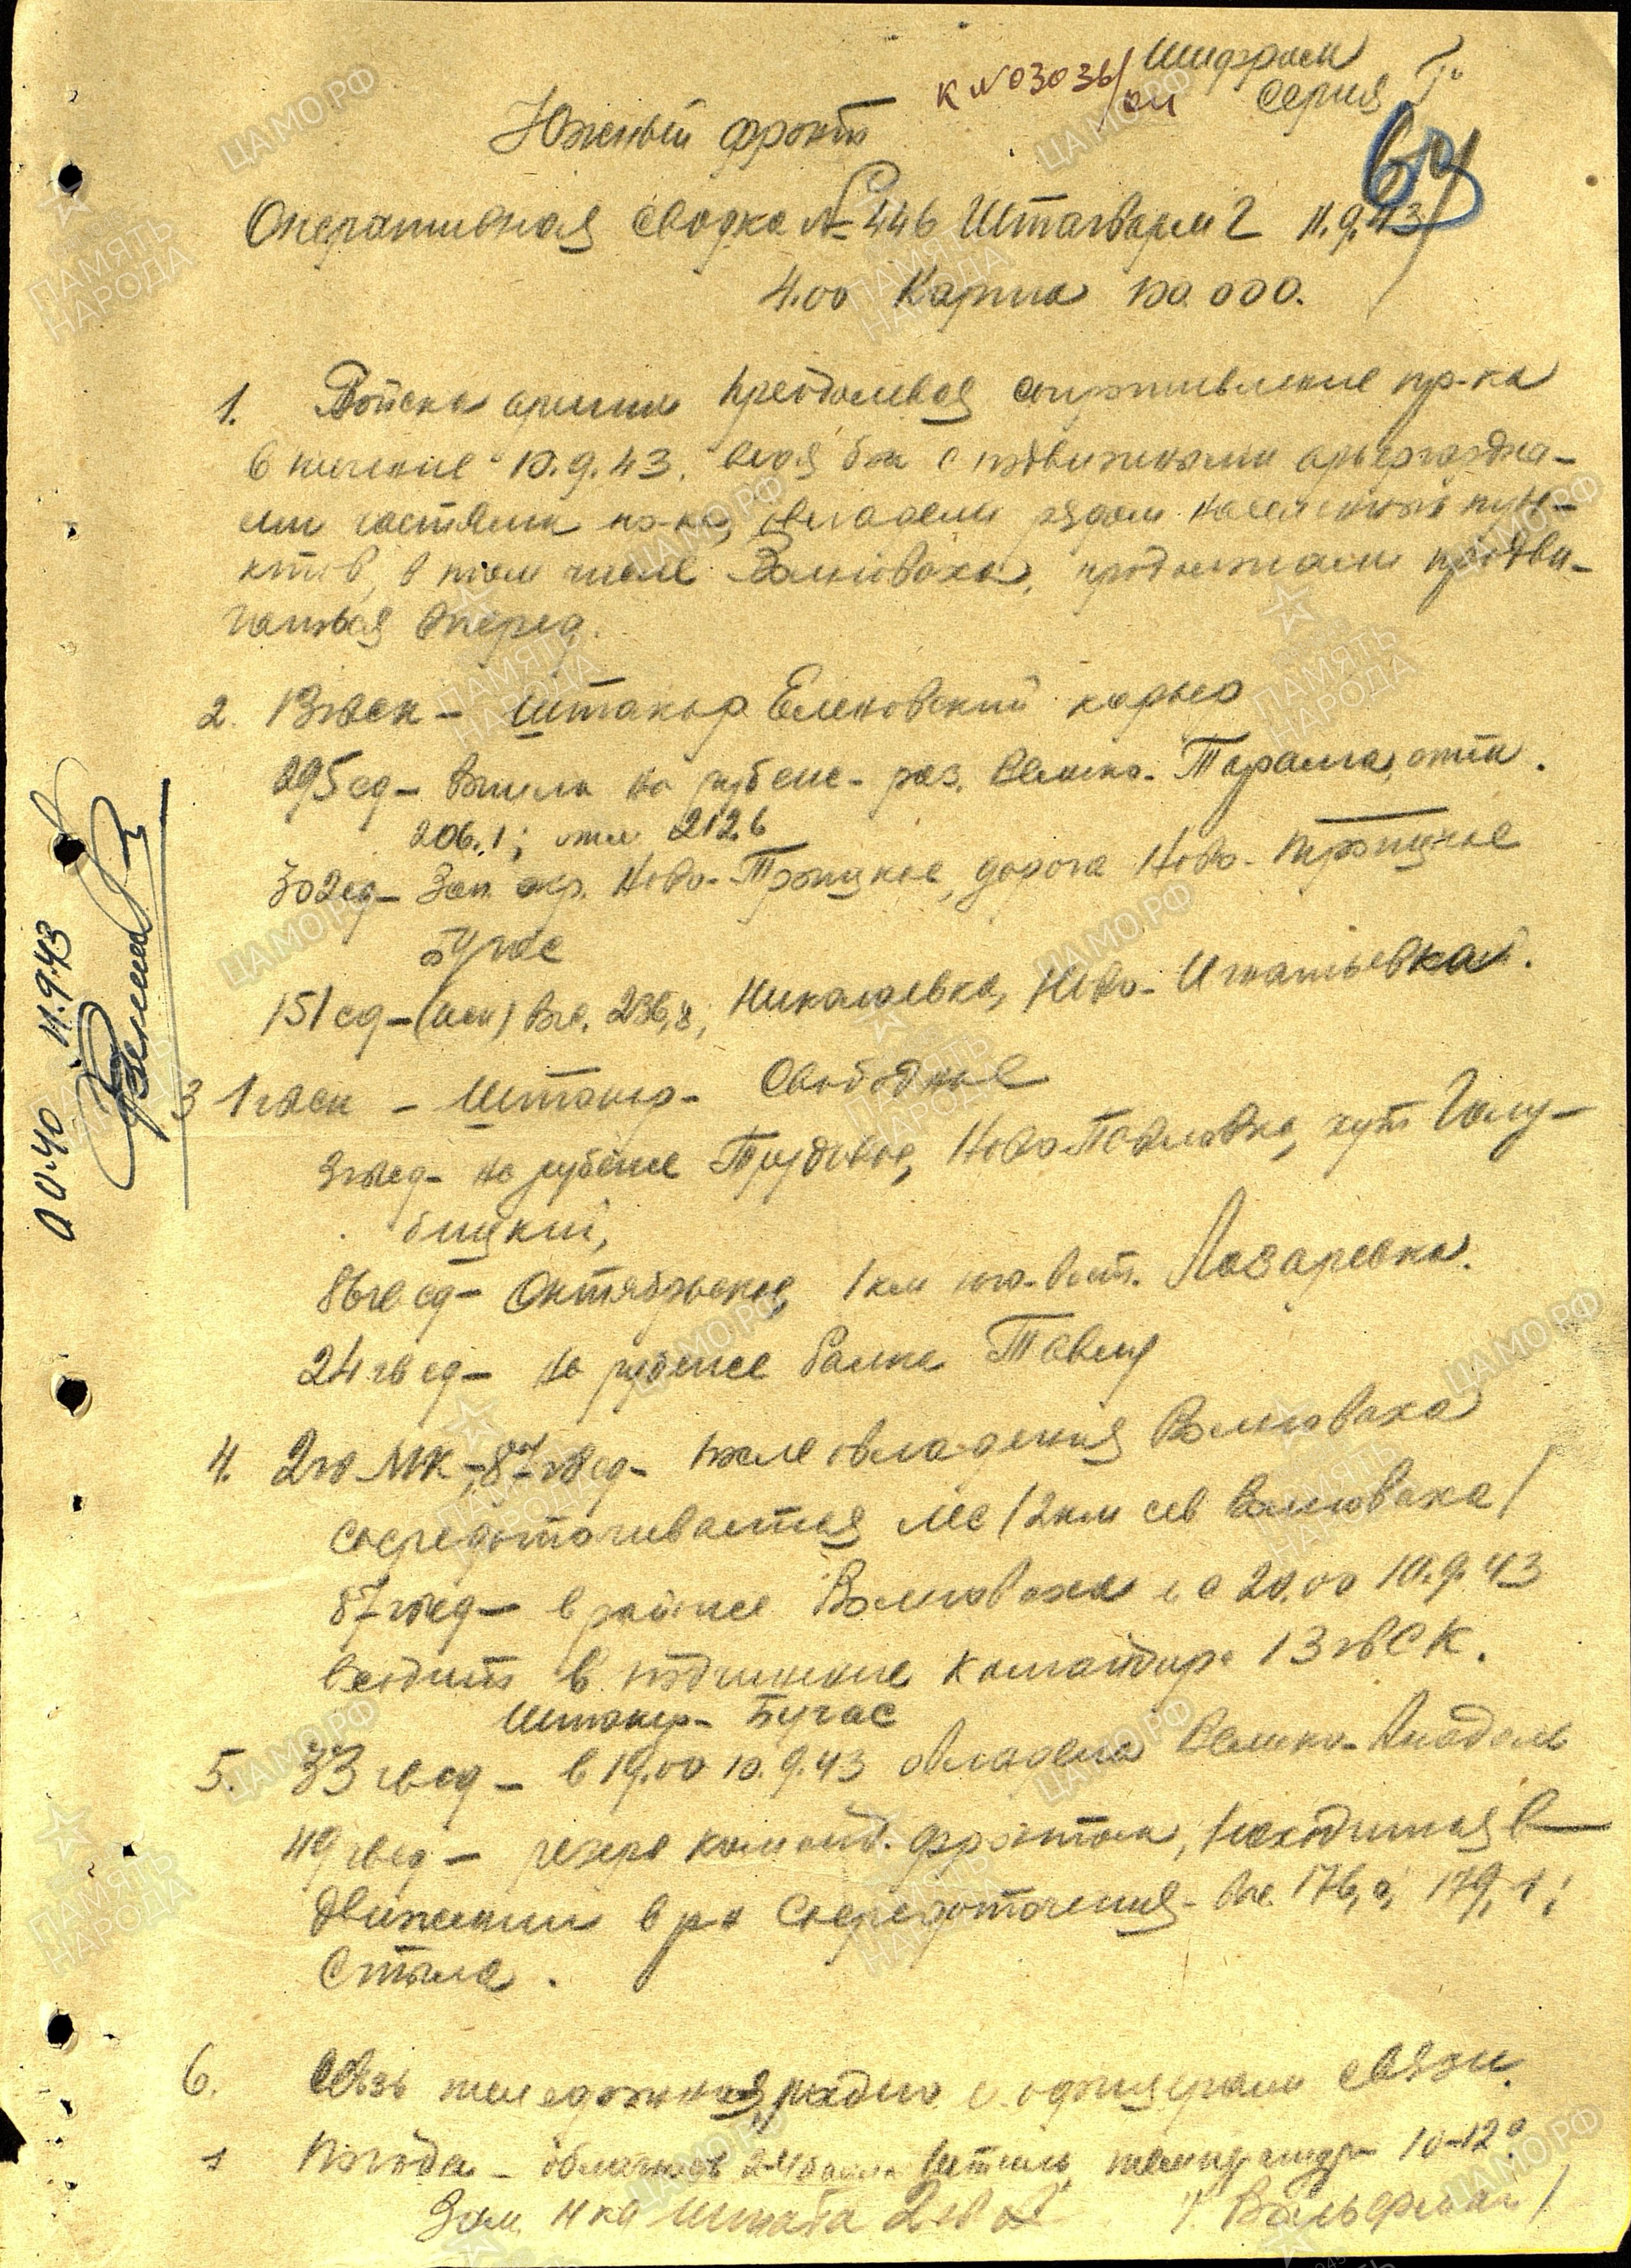 Шифром
к №03036/оп Серия "Г"
Южный фронт
67
Оперативная сводка № 446 Штагварм 2 11.9.43
4.00 Карта 100.000.
1. Войска армии преодолевая сопротивление пр-ка
в течение 10.9.43. ведя бои с подвижными арьергардны-
ми частями пр-ка, овладели рядом населенных пун-
ктов, в том числе Волноваха, продолжали продви-
гаться вперед.
2. 13 гвск - Штакор Еленовский карьер
295 сд - вышла на рубеже - раз. Велико- Тарама, отм.
206.1; отм 212.6
302 сд - Зап. окр. Ново-Троицкое, дорога Ново-Троицкое
Бугас
151 сд - (иск) выс. 236,8, Николаевка, Ново-Игнатьевка.
3 1 гвск - Штакор - Свободное
3 гвсд - на рубеже Трудовое, Ново Павловка, хут. Голу-
бицкий,
86 гв сд - Октябрьское, 1 км юго-вост. Лазаревка.
24 гв сд - на рубеже балка Тавла
4. 2 гв МК, 87 гв сд - после овладения Волноваха
сосредотачивается лес /2 км сев Волноваха/
87 гвсд - в районе Волноваха и с 20.00 10.9.43
входит в подчинение командира 13 гв СК.
Штакор - Бугас
5. 33 гвсд - в 19.00 10.9.43 овладела Велико-Анадоль
49 гвсд - резерв команд. фронтом, находится в
движении в р-н сосредоточения - выс. 176, 179,1;
Стыла.
6. Связь телефонная, радио и офицерами связи.
Погода - облачность 2-4 балла Штиль, температура 10-12°
Зам Нка Штаба 2 гв А / Вальдман /
00.40 11.9.43
ЦАМО.РФ
ПАМЯТЬ
НАРОДА